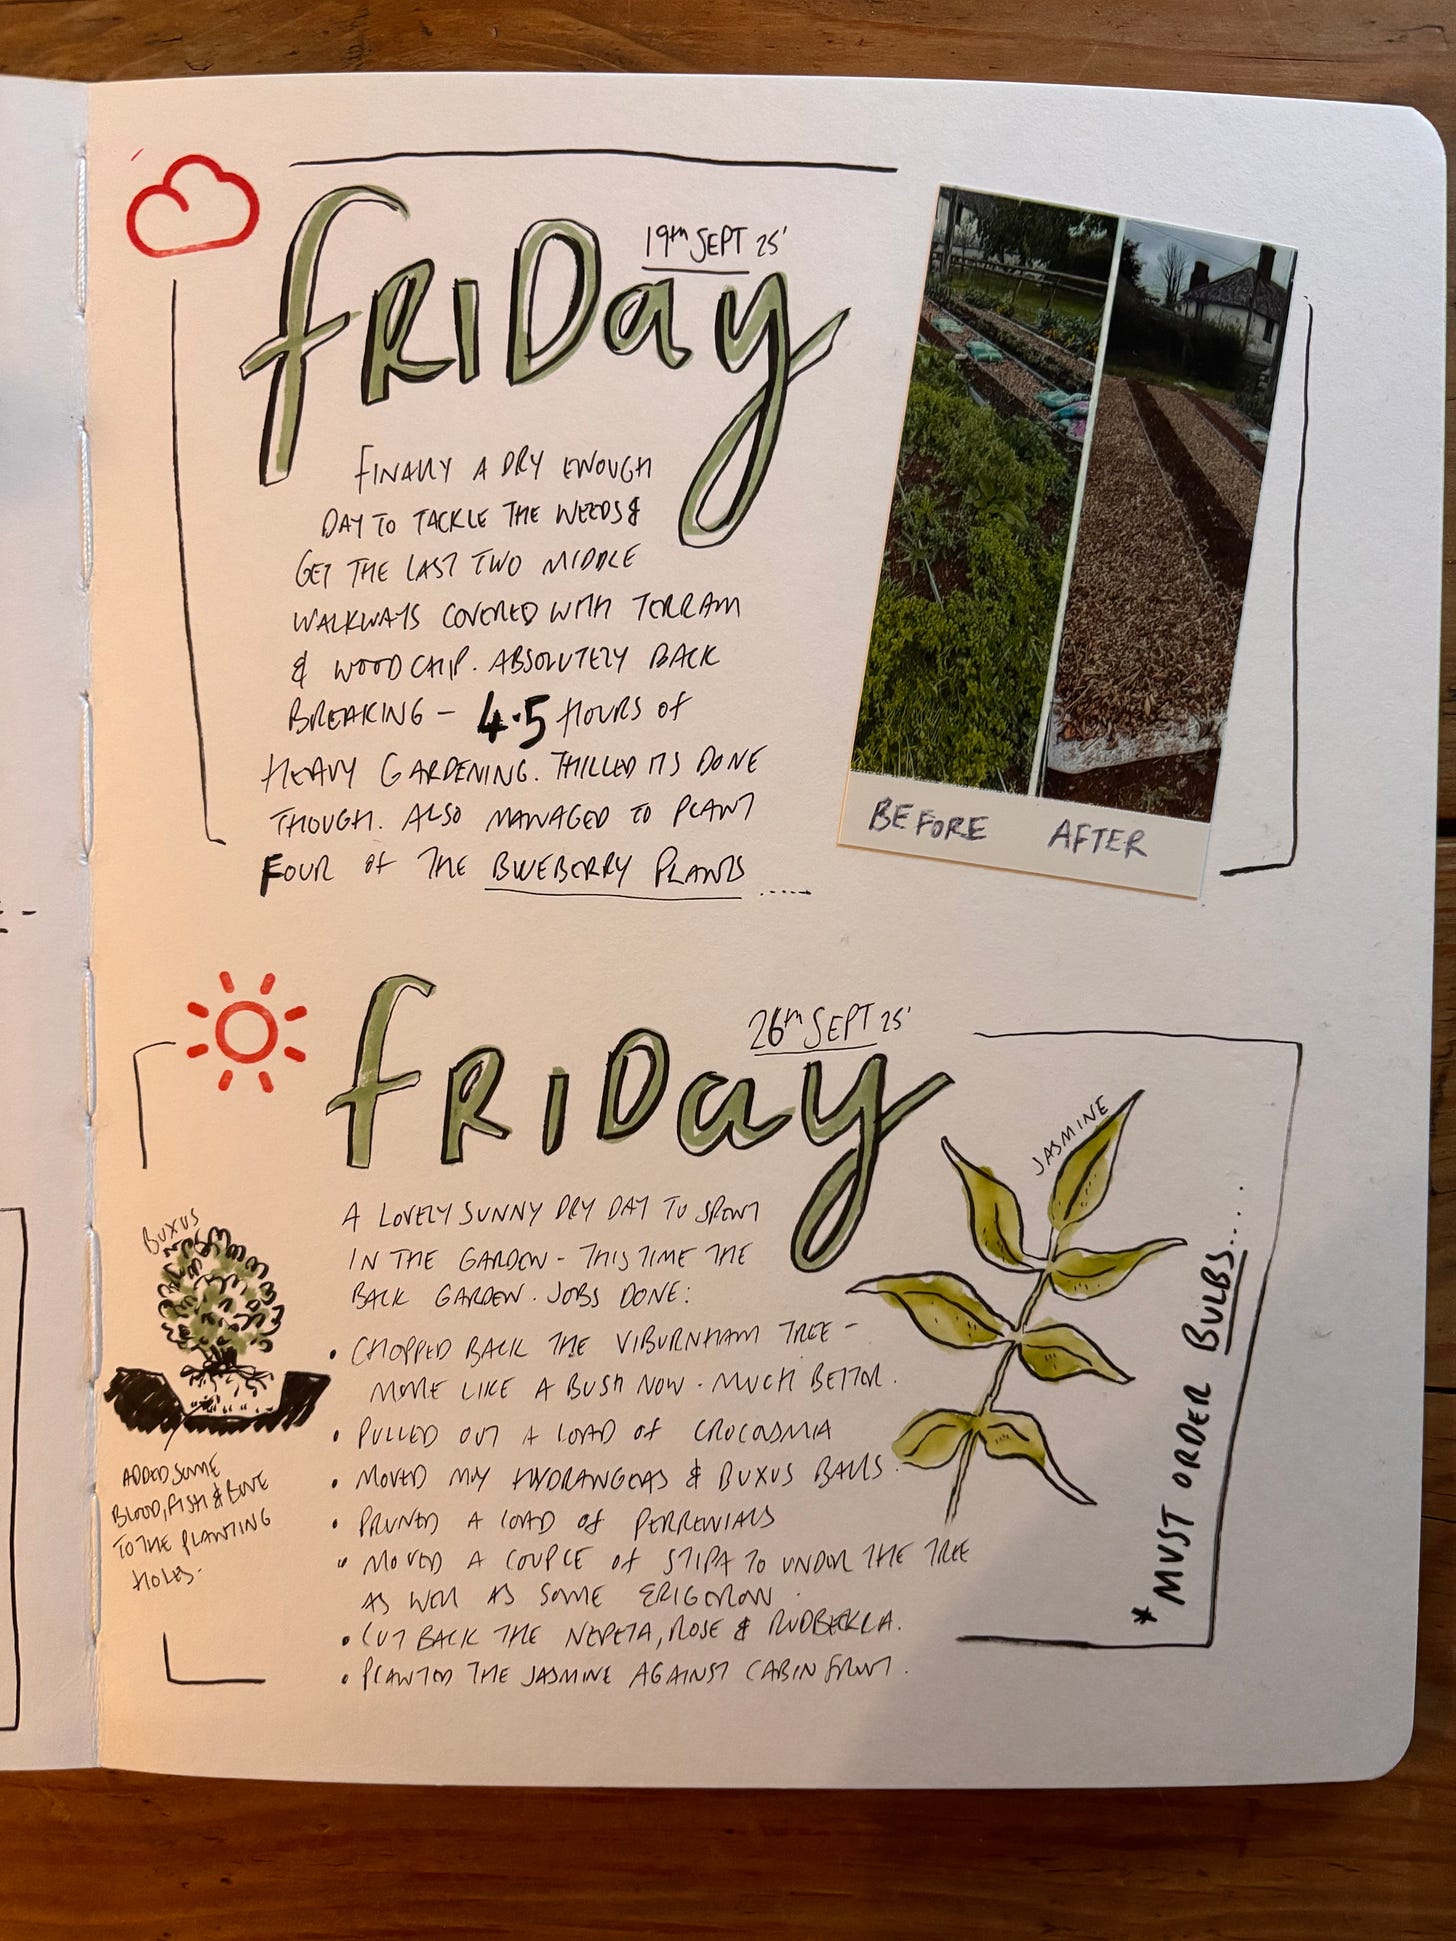 FRIDAY
19th SEPT 25'
FINALLY A DRY ENOUGH
DAY TO TACKLE THE WEEDS &
GET THE LAST TWO MIDDLE
WALKWAYS COVERED WITH TERRAM
& WOOD CHIP. ABSOLUTELY BACK
BREAKING – 4.5 HOURS OF
HEAVY GARDENING. THILLED ITS DONE
THOUGH. ALSO MANAGED TO PLANT
FOUR OF THE BLUEBERRY PLANTS .....
BEFORE AFTER
FRIDAY
26th SEPT 25'
A LOVELY SUNNY DRY DAY TO SPENT
IN THE GARDEN – THIS TIME THE
BACK GARDEN. JOBS DONE:
• CHOPPED BACK THE VIBURNHAM TREE –
MORE LIKE A BUSH NOW. MUCH BETTER.
• PULLED OUT A LOAD OF CROCOSMIA
• MOVED MY HYDRANGEAS & BUXUS BALLS.
• PRUNED A LOAD OF PERRENIALS
• MOVED A COUPLE OF STIPA TO UNDER THE TREE
AS WELL AS SOME ERIGERON.
• CUT BACK THE NEPETA, ROSE & RUDBECKLA.
• PLANTED THE JASMINE AGAINST CABIN FRONT.
BUXUS
ADDED SOME
BLOOD, FISH & BONE
TO THE PLANTING
HOLES.
JASMINE
* MUST ORDER BULBS....